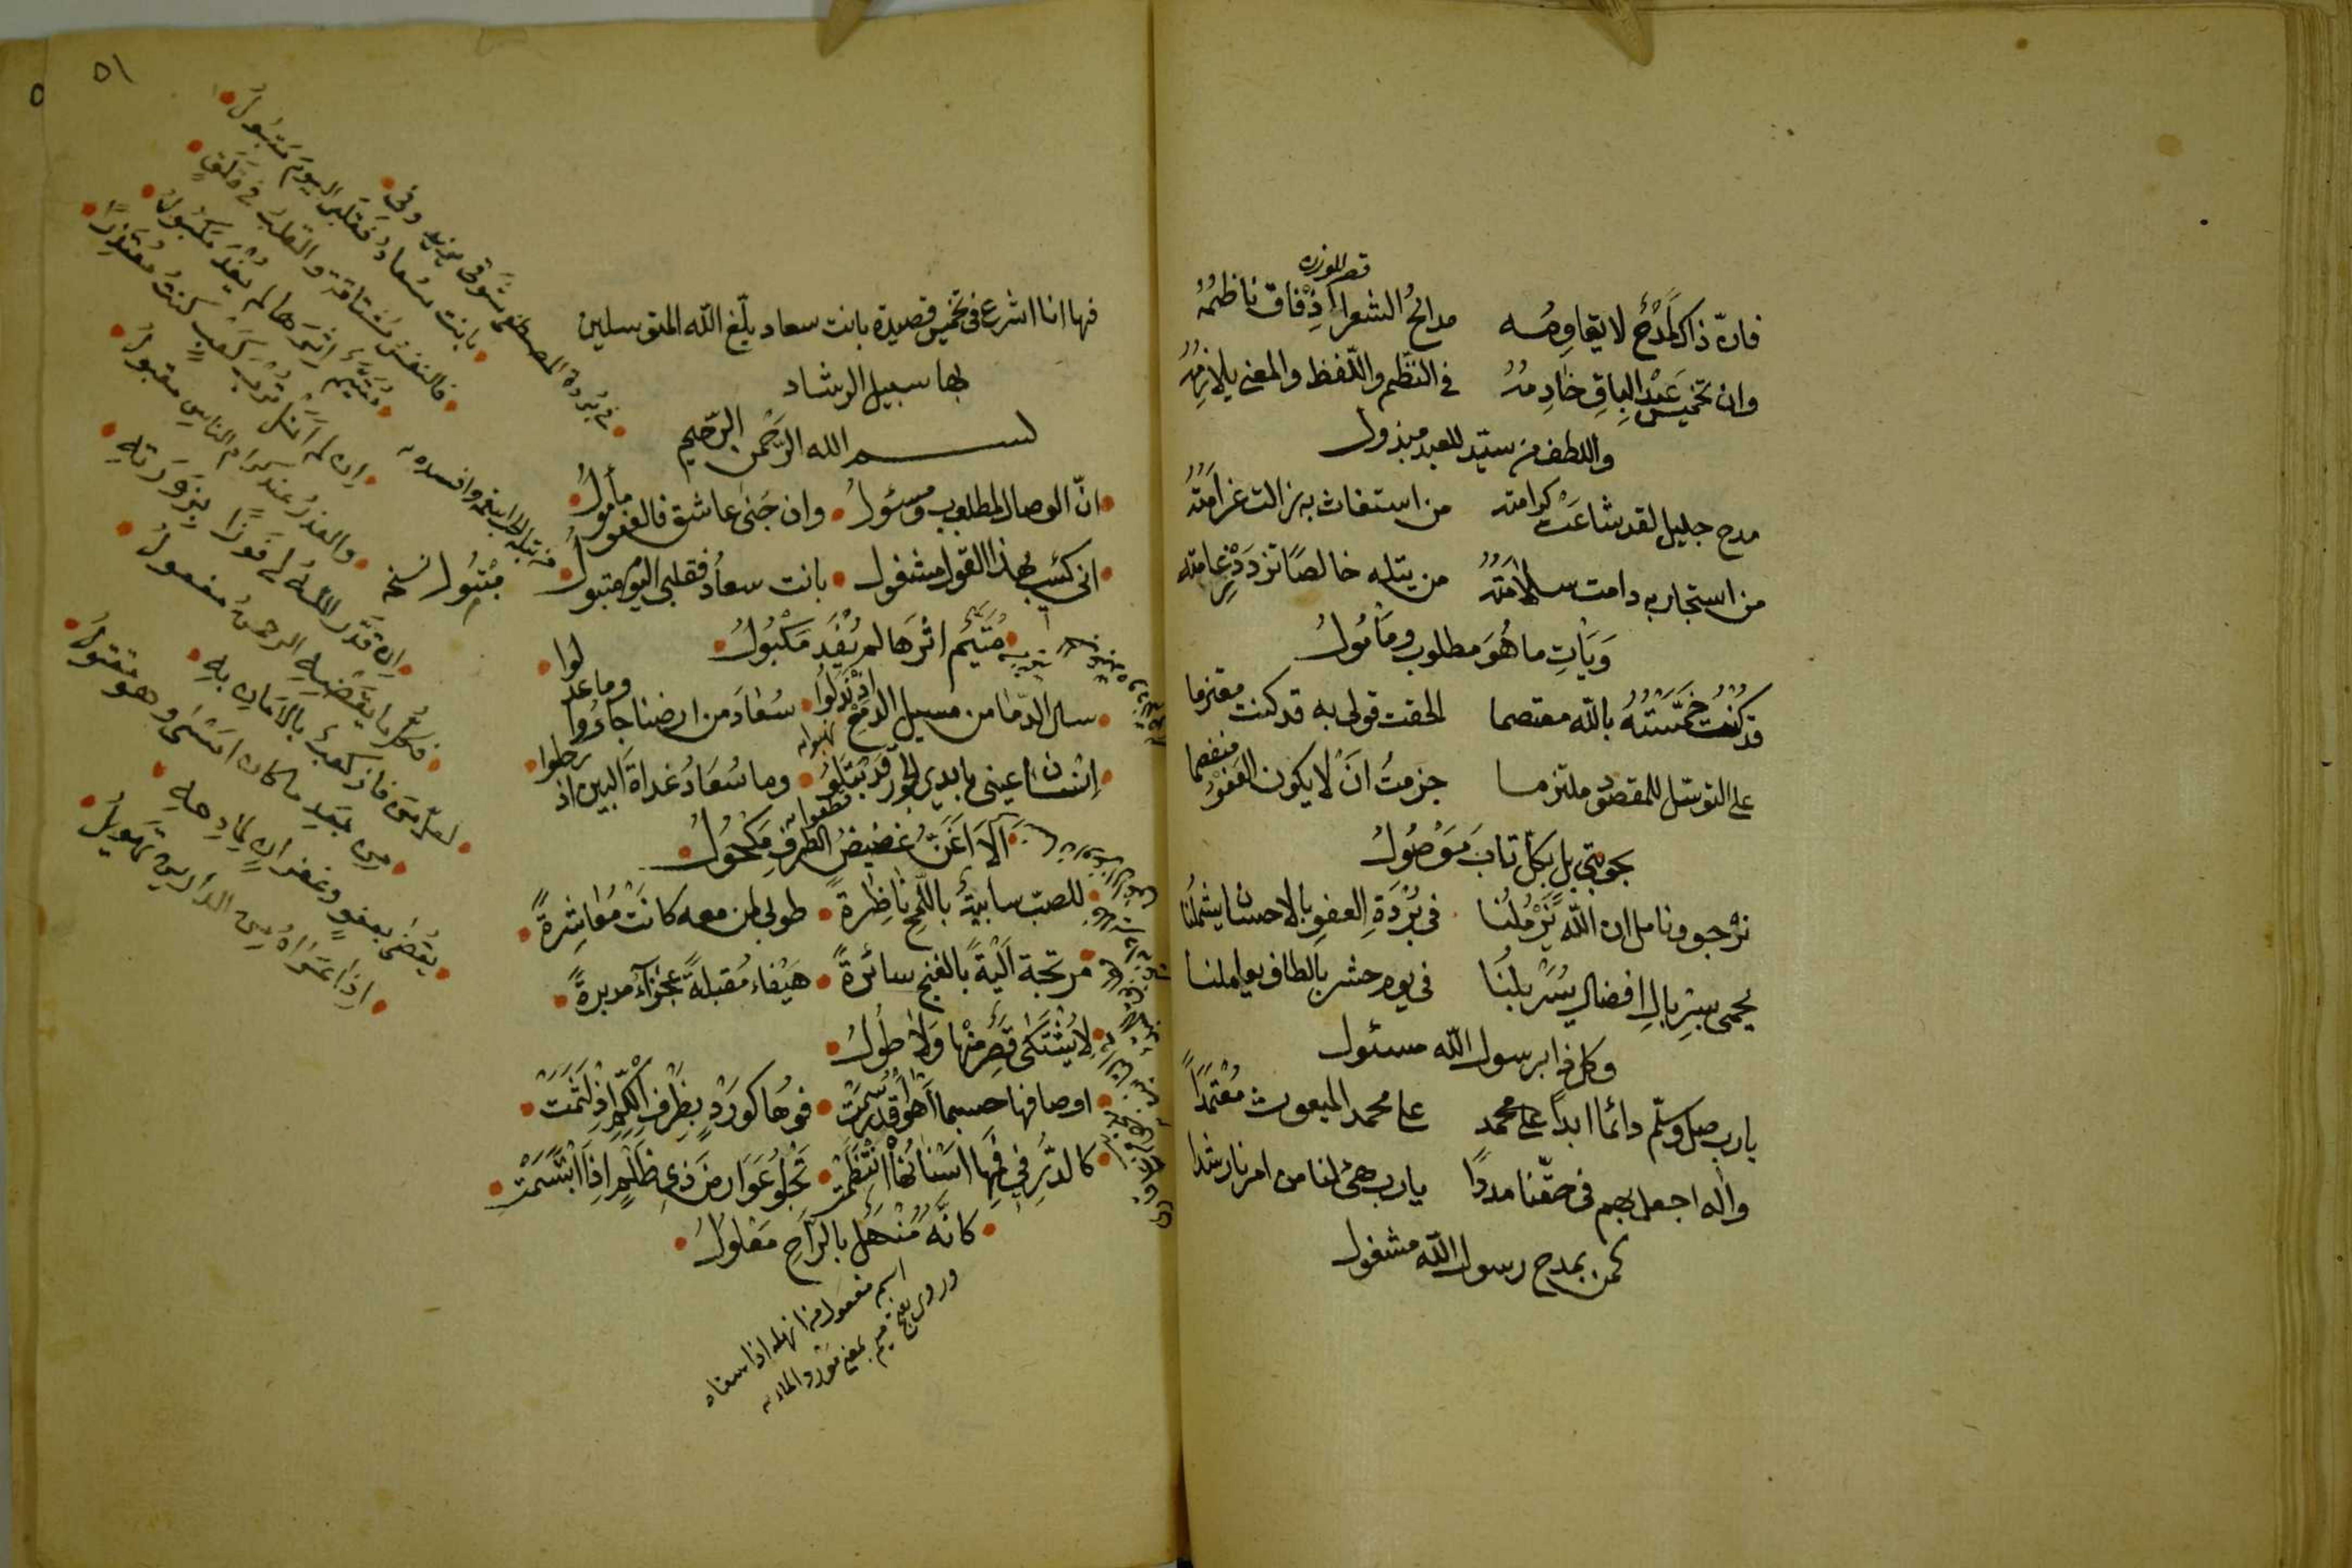 قصر للوزن
فان ذاك لمدح لا يقاومه مدائح الشعرا اذ فاق ناظمه
وان تخميس عبد الباق خادمه في النظم واللفظ والمعنى يلازمه
واللطف من سيد للعبد مبذول
مدح جليل لقد شاعت كرامته من استغاث به زالت غرامته
من استجار به دامت سلامته من يتله خالصا تزدد زعامته
ويات ما هو مطلوب ومأمول
قد كنت خمسته بالله معتصما الحقت قولى به قد كنت مغترما
على التوسل للمقصود ملتزما جزمت ان لا يكون العفو منفصما
بحوبتي بل بكل تاب موصول
نرجو ونامل ان الله يزملنا في بردة العفو بالاحسان يشملنا
يحمى بسربال افضال يسربلنا في يوم حشر بالطاف يعاملنا
وكل ابرسول الله مسئول
يارب صل وسلم دائما ابدا على محمد على محمد المبعوث معتمدا
واله اجعل بهم في حقنا مددا يارب هيئ لنا من امرنا رشدا
نحن بمدح رسول الله مشغول
٥١
فها انا اشرع في تخميس قصيدة بانت سعاد بلغ الله المتوسلين
بها سبيل الرشاد
بسم الله الرحمن الرحيم
ان الوصال لمطلوب ومسؤل وان جنى عاشق فالعفو مأمول
انى كئيب بهذا القول مشغول بانت سعاد فقلبى اليوم متبول
متيم اثرها لم يفد مكبول
سال الدما من مسيل الدمع اذ نزلوا سعاد من ارضنا جاؤوا وما عدلوا
انسان عينى بايدى الجور قد بتلوا وما سعاد غداة البين اذ رحلوا
الا اغن غضيض الطرف مكحول
للصب سابية باللمح ناظرة طوبى لمن معه كانت معاشرة
مرتجة الية بالغنج سائرة هيفاء مقبلة عجزاء مدبرة
لا يشتكى قصر منها ولا طول
اوصافها حسبما اهوا قد رسمت فوها كورد بظرف الكم اذ لثمت
كالدر في فيها اسنانها انتظمت تجلو عوارض ذى ظلم اذا ابتسمت
كانه منهل بالراح معلول
اسم مفعول من انهله اذا سقاه
وروى بفتح ميم بمعنى مورد الماء
متبول نسخه
في بردة المصطفى شوقى يزيد وفي
بانت سعاد فقلبى اليوم متبول
فالنفس مشتاقة والقلب في قلق
متيم اثرها لم يفد مكبول
ان لم انل قرب كعب كنت معتذرا
والعذر عند كرام الناس مقبول
ان قدر الله لى فوزا بزورته
فكل ما يقضيه الرحمن مفعول
لعل من فاز كعب بالامان به
من بعد ما كان امسى وهو مقتول
يقضى بعفو وغفران لمادحه
اذا عراه من الدارين تهويل